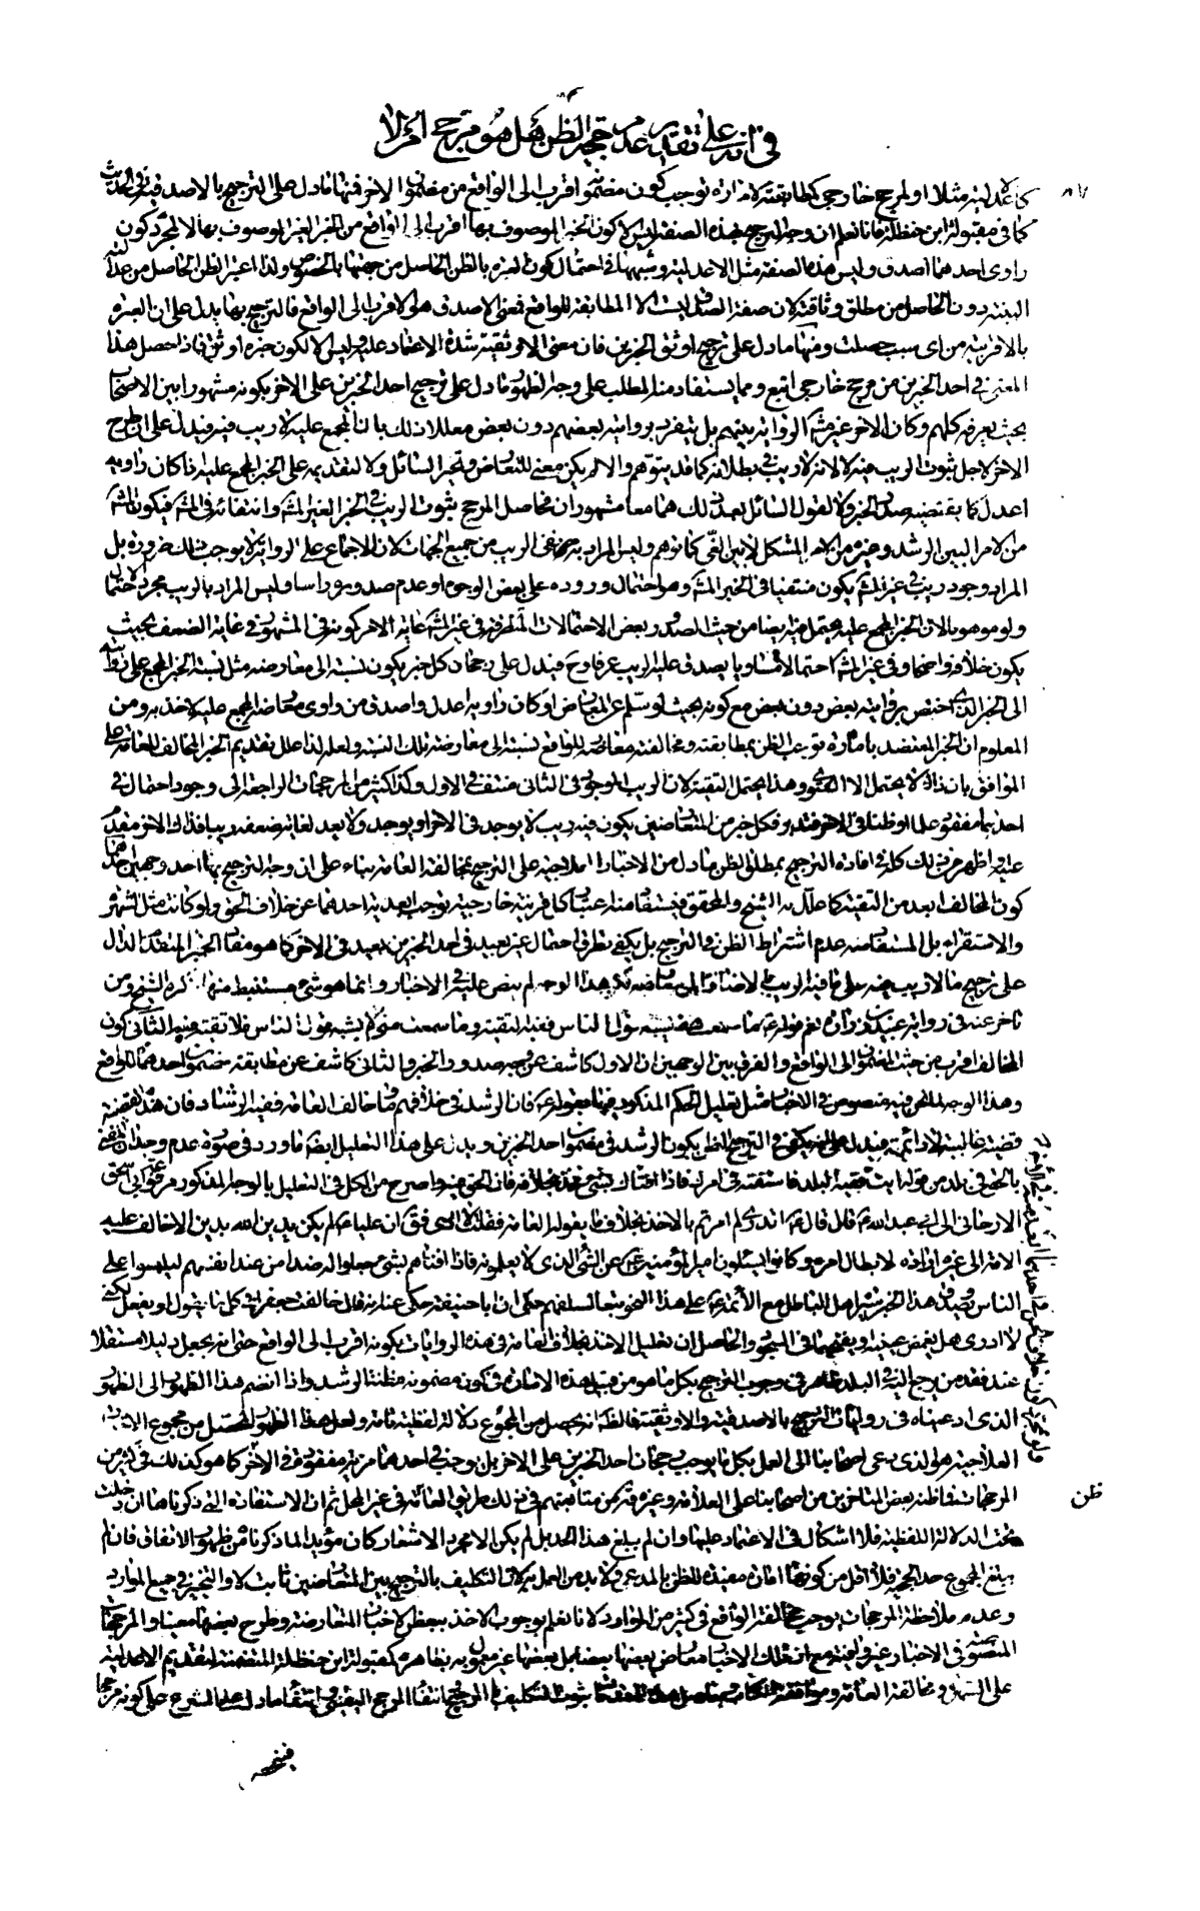 في انه على تقدير عدم حجية الظن هل هو مرجح ام لا
كالاعدلية مثلا او لمرجح خارجي كمطابقته لامارة توجب كون مضمونه اقرب الى الواقع من مضمون الاخر فمنها ما دل على الترجيح بالاصدقية في الحديث
كما في مقبولة ابن حنظلة فانا نعلم ان وجه الترجيح بهذه الصفة ليس الا كون الخبر الموصوف بها اقرب الى الواقع من الخبر الغير الموصوف بها لا لمجرد كون
راوى احدهما اصدق وليس هذه الصفة مثل الاعدلية وشبهها في احتمال كون العبرة بالظن الحاصل من جهتها بالخصوص ولذا اعتبر الظن الحاصل من عدالة
البينة دون الحاصل من مطلق وثاقته لان صفة الصدق ليست الا المطابقة للواقع فمعنى الاصدق هو الاقرب الى الواقع فالترجيح بها يدل على ان العبرة
بالاقربية من اى سبب حصلت ومنها ما دل على ترجيح اوثق الخبرين فان معنى الاوثقية شدة الاعتماد عليه وليس الا لكون خبره اوثق فاذا حصل هذا
المعنى في احد الخبرين من مرجح خارجي اتبع ومما يستفاد منه المطلب على وجه الظهور ما دل على ترجيح احد الخبرين على الاخر بكونه مشهورا بين الاصحاب
بحيث يعرفه كلهم وكان الاخر غير مشهور الرواية بينهم بل ينفرد بروايته بعضهم دون بعض معللا ذلك بان المجمع عليه لا ريب فيه فيدل على ان طرح
الاخر لاجل ثبوت الريب فيه لا لانه لا ريب في بطلانه كما قد يتوهم والا لم يكن معنى للتعارض وتحير السائل ولا لتقديمه على الخبر المجمع عليه اذا كان راويه
اعدل كما يقتضيه صدر الخبر ولا لقول السائل بعد ذلك هما معا مشهوران فحاصل المرجح ثبوت الريب في الخبر الغير المشهور وانتفائه في المشهور فيكون المشهور
من الامر البين الرشد وغيره من الامر المشكل لا بين الغى كما توهم وليس المراد به نفى الريب من جميع الجهات لان الاجماع على الرواية لا يوجب ذلك ضرورة بل
المراد وجود ريب في غير المشهور يكون منتفيا في الخبر المشهور وهو احتمال وروده على بعض الوجوه او عدم صدوره راسا وليس المراد بالريب مجرد الاحتمال
ولو موهوما لان الخبر المجمع عليه يحتمل فيه ايضا من حيث الصدور بعض الاحتمالات المتطرقة في غير المشهور غاية الامر كونه في المشهور في غاية الضعف بحيث
يكون خلافه واضحا وفي غير المشهور احتمالا مساويا يصدق عليه الريب عرفا وح فيدل على رجحان كل خبر يكون نسبته الى معارضه مثل نسبة الخبر المجمع على روايته
الى الخبر الذى اختص بروايته بعض دون بعض مع كونه بحيث لو سلم عن المعارض او كان راويه اعدل واصدق من راوى معارضه المجمع عليه لاخذ به ومن
المعلوم ان الخبر المعتضد بامارة توجب الظن بمطابقته ومخالفة معارضه للواقع نسبته الى معارضه تلك النسبة ولعله لذا علل تقديم الخبر المخالف للعامة على
الموافق بان ذاك لا يحتمل الا الفتوى وهذا يحتمل التقية لان الريب الموجود في الثانى منتف في الاول وكذا كثير من المرجحات الراجعة الى وجود احتمال في
احدهما مفقود علما او ظنا في الاخر فكل خبر من المتعارضين يكون فيه ريب لا يوجد في الاخر او يوجد ولا يعد لغاية ضعفه ريبا فذاك الاخر مقدم
عليه واظهر من ذلك كله في افادة الترجيح بمطلق الظن ما دل من الاخبار العلاجية على الترجيح بمخالفة العامة بناء على ان وجه الترجيح بها احد وجهين احدهما
كون المخالف ابعد من التقية كما علل به الشيخ والمحقق فيستفاد منه اعتبار كل قرينة خارجية توجب ابعدية احدهما عن خلاف الحق ولو كانت مثل الشهرة
والاستقراء بل المستفاد منه عدم اشتراط الظن في الترجيح بل يكفى تطرق احتمال غير بعيد في احد الخبرين بعيد في الاخر كما هو مفاد الخبر المتقدم الدال
على ترجيح ما لا ريب فيه على ما فيه الريب بالاضافة الى معارضه لكن هذا الوجه لم ينص عليه في الاخبار وانما هو شئ مستنبط منها ذكره الشيخ ومن
تاخر عنه في رواية عبيد بن زرارة نعم قوله ع ما سمعت منى يشبه قول الناس ففيه التقية وما سمعت منى لا يشبه قول الناس فلا تقية فيه الثانى كون
المخالف اقرب من حيث المضمون الى الواقع والفرق بين الوجهين ان الاول كاشف عن وجه صدور الخبر والثانى كاشف عن مطابقة مضمون احدهما للواقع
وهذا الوجه لما نحن فيه منصوص في الاخبار مثل تعليل الحكم المذكور فيها بقوله ع فان الرشد في خلافهم وما خالف العامة ففيه الرشاد فان هذه القضية
قضية غالبية لا دائمية فيدل على انه يكفى في الترجيح الظن بكون الرشد في مضمون احد الخبرين ويدل على هذا التعليل ايضا ما ورد في صورة عدم وجدان المفتى
بالحق في بلد من قوله ائت فقيه البلد فاستفته في امرك فاذا افتاك بشئ فخذ بخلافه فان الحق فيه واصرح من الكل في التعليل بالوجه المذكور مرفوعة ابى اسحق
الارجانى الى ابى عبد الله ع قال قال ع اتدرى لم امرتم بالاخذ بخلاف ما يقوله العامة فقلت لا ادرى فق ان عليا ع لم يكن يدين الله بدين الا خالف عليه
الامة الى غيره ارادة لابطال امره وكانوا يسئلون امير المؤمنين ع عن الشئ الذى لا يعلمونه فاذا افتاهم بشئ جعلوا له ضدا من عند انفسهم ليلبسوا على
الناس ويصدق هذا الخبر سيرة اهل الباطل مع الائمة ع على هذا النحو تبعا لسلفهم حتى ان ابا حنيفة حكى عنه انه قال خالفت جعفرا في كل ما يقول او يفعل لكنى
لا ادرى هل يغمض عينيه او يفتحهما في السجود والحاصل ان تعليل الاخذ بخلاف العامة في هذه الروايات بكونه اقرب الى الواقع حتى انه يجعل دليلا مستقلا
عند فقد من يرجع اليه في البلد ظاهر في وجوب الترجيح بكل ما هو من قبيل هذه الامارة في كون مضمونه مظنة الرشد واذا انضم هذا الظهور الى الظهور
الذى ادعيناه في روايات الترجيح بالاصدقية والاوثقية فالظاهر انه يحصل من المجموع دلالة لفظية تامة ولعل هذا الظهور المحصل من مجموع الاخبار
العلاجية هو الذى دعى اصحابنا الى العمل بكل ما يوجب رجحان احد الخبرين على الاخر بل يوجب في احدهما مزية مفقودة في الاخر كما هو كذلك في كثير من
المرجحات فما ظنه بعض المتاخرين من اصحابنا على العلامة وغيره قده من متابعتهم في ذلك طريق العامة في غير المحل ثم ان الاستفادة التى ذكرناها ان دخلت
ظن
تحت الدلالة اللفظية فلا اشكال في الاعتماد عليها وان لم يبلغ هذا الحد بل لم يكن الا مجرد الاشعار كان مؤيدا لما ذكرناه من ظهور الاتفاق فان لم
يبلغ المجموع حد الحجية فلا اقل من كونها امارة مفيدة للظن بالمدعى ولا بد من العمل به لان التكليف بالترجيح بين المتعارضين ثابت لان التخيير في جميع الموارد
وعدم ملاحظة المرجحات يوجب مخالفة الواقع في كثير من الموارد لانا نعلم بوجوب الاخذ ببعض الاخبار المتعارضة وطرح بعضها معينا والمرجحات
المنصوصة في الاخبار غير وافية مع ان تلك الاخبار معارض بعضها بعضا بل بعضها غير معمول به بظاهره كمقبولة ابن حنظلة المتضمنة لتقديم الاعدلية
على الشهرة ومخالفة العامة وموافقة الكتاب وحاصل هذه المقدمات ثبوت التكليف بالترجيح وانتفاء المرجح اليقينى وانتفاء ما دل الشرع على كونه مرجحا
فينحصر